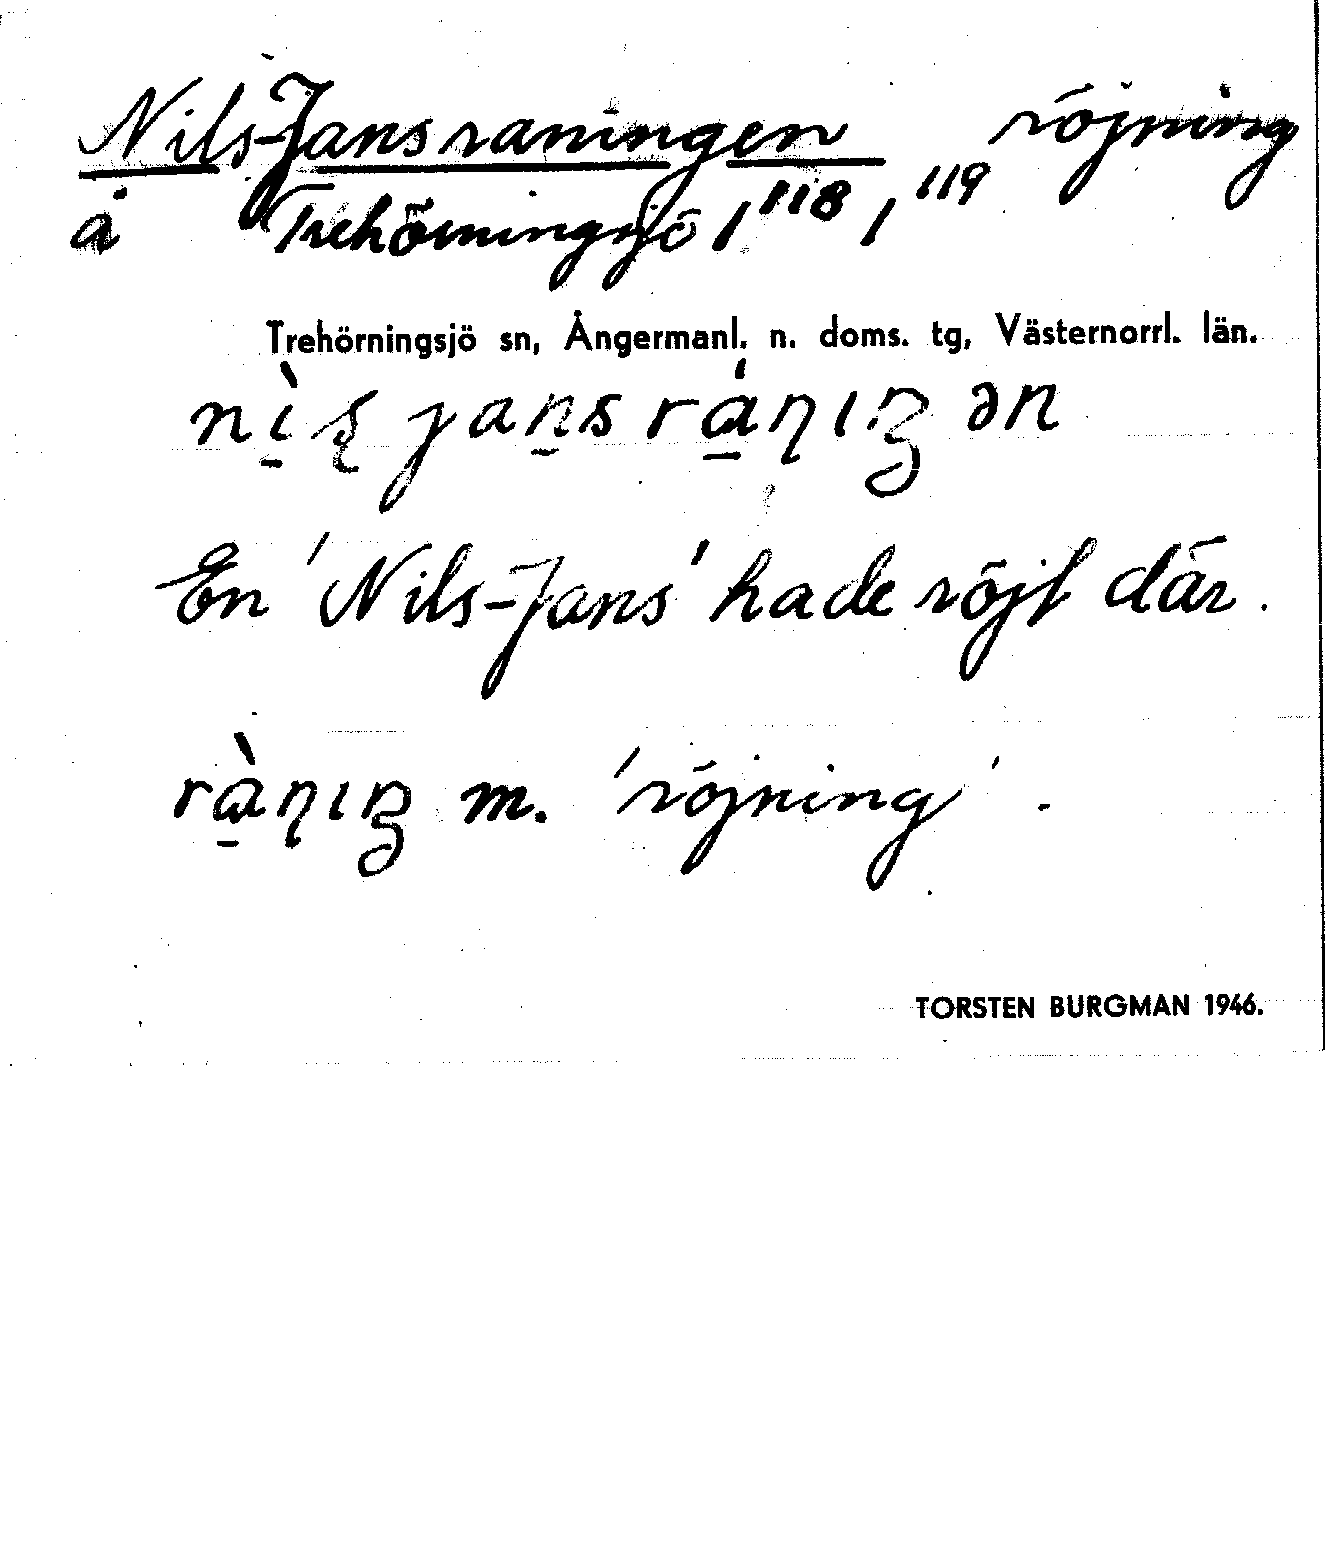 Nils-Jansraningen röjning
å Trehörningsjö 1¹¹⁸, 1¹¹⁹
Trehörningsjö sn, Ångermanl. n. doms. tg, Västernorrl. län.
En 'Nils-Jans' hade röjt där.
m. 'röjning'.
TORSTEN BURGMAN 1946.